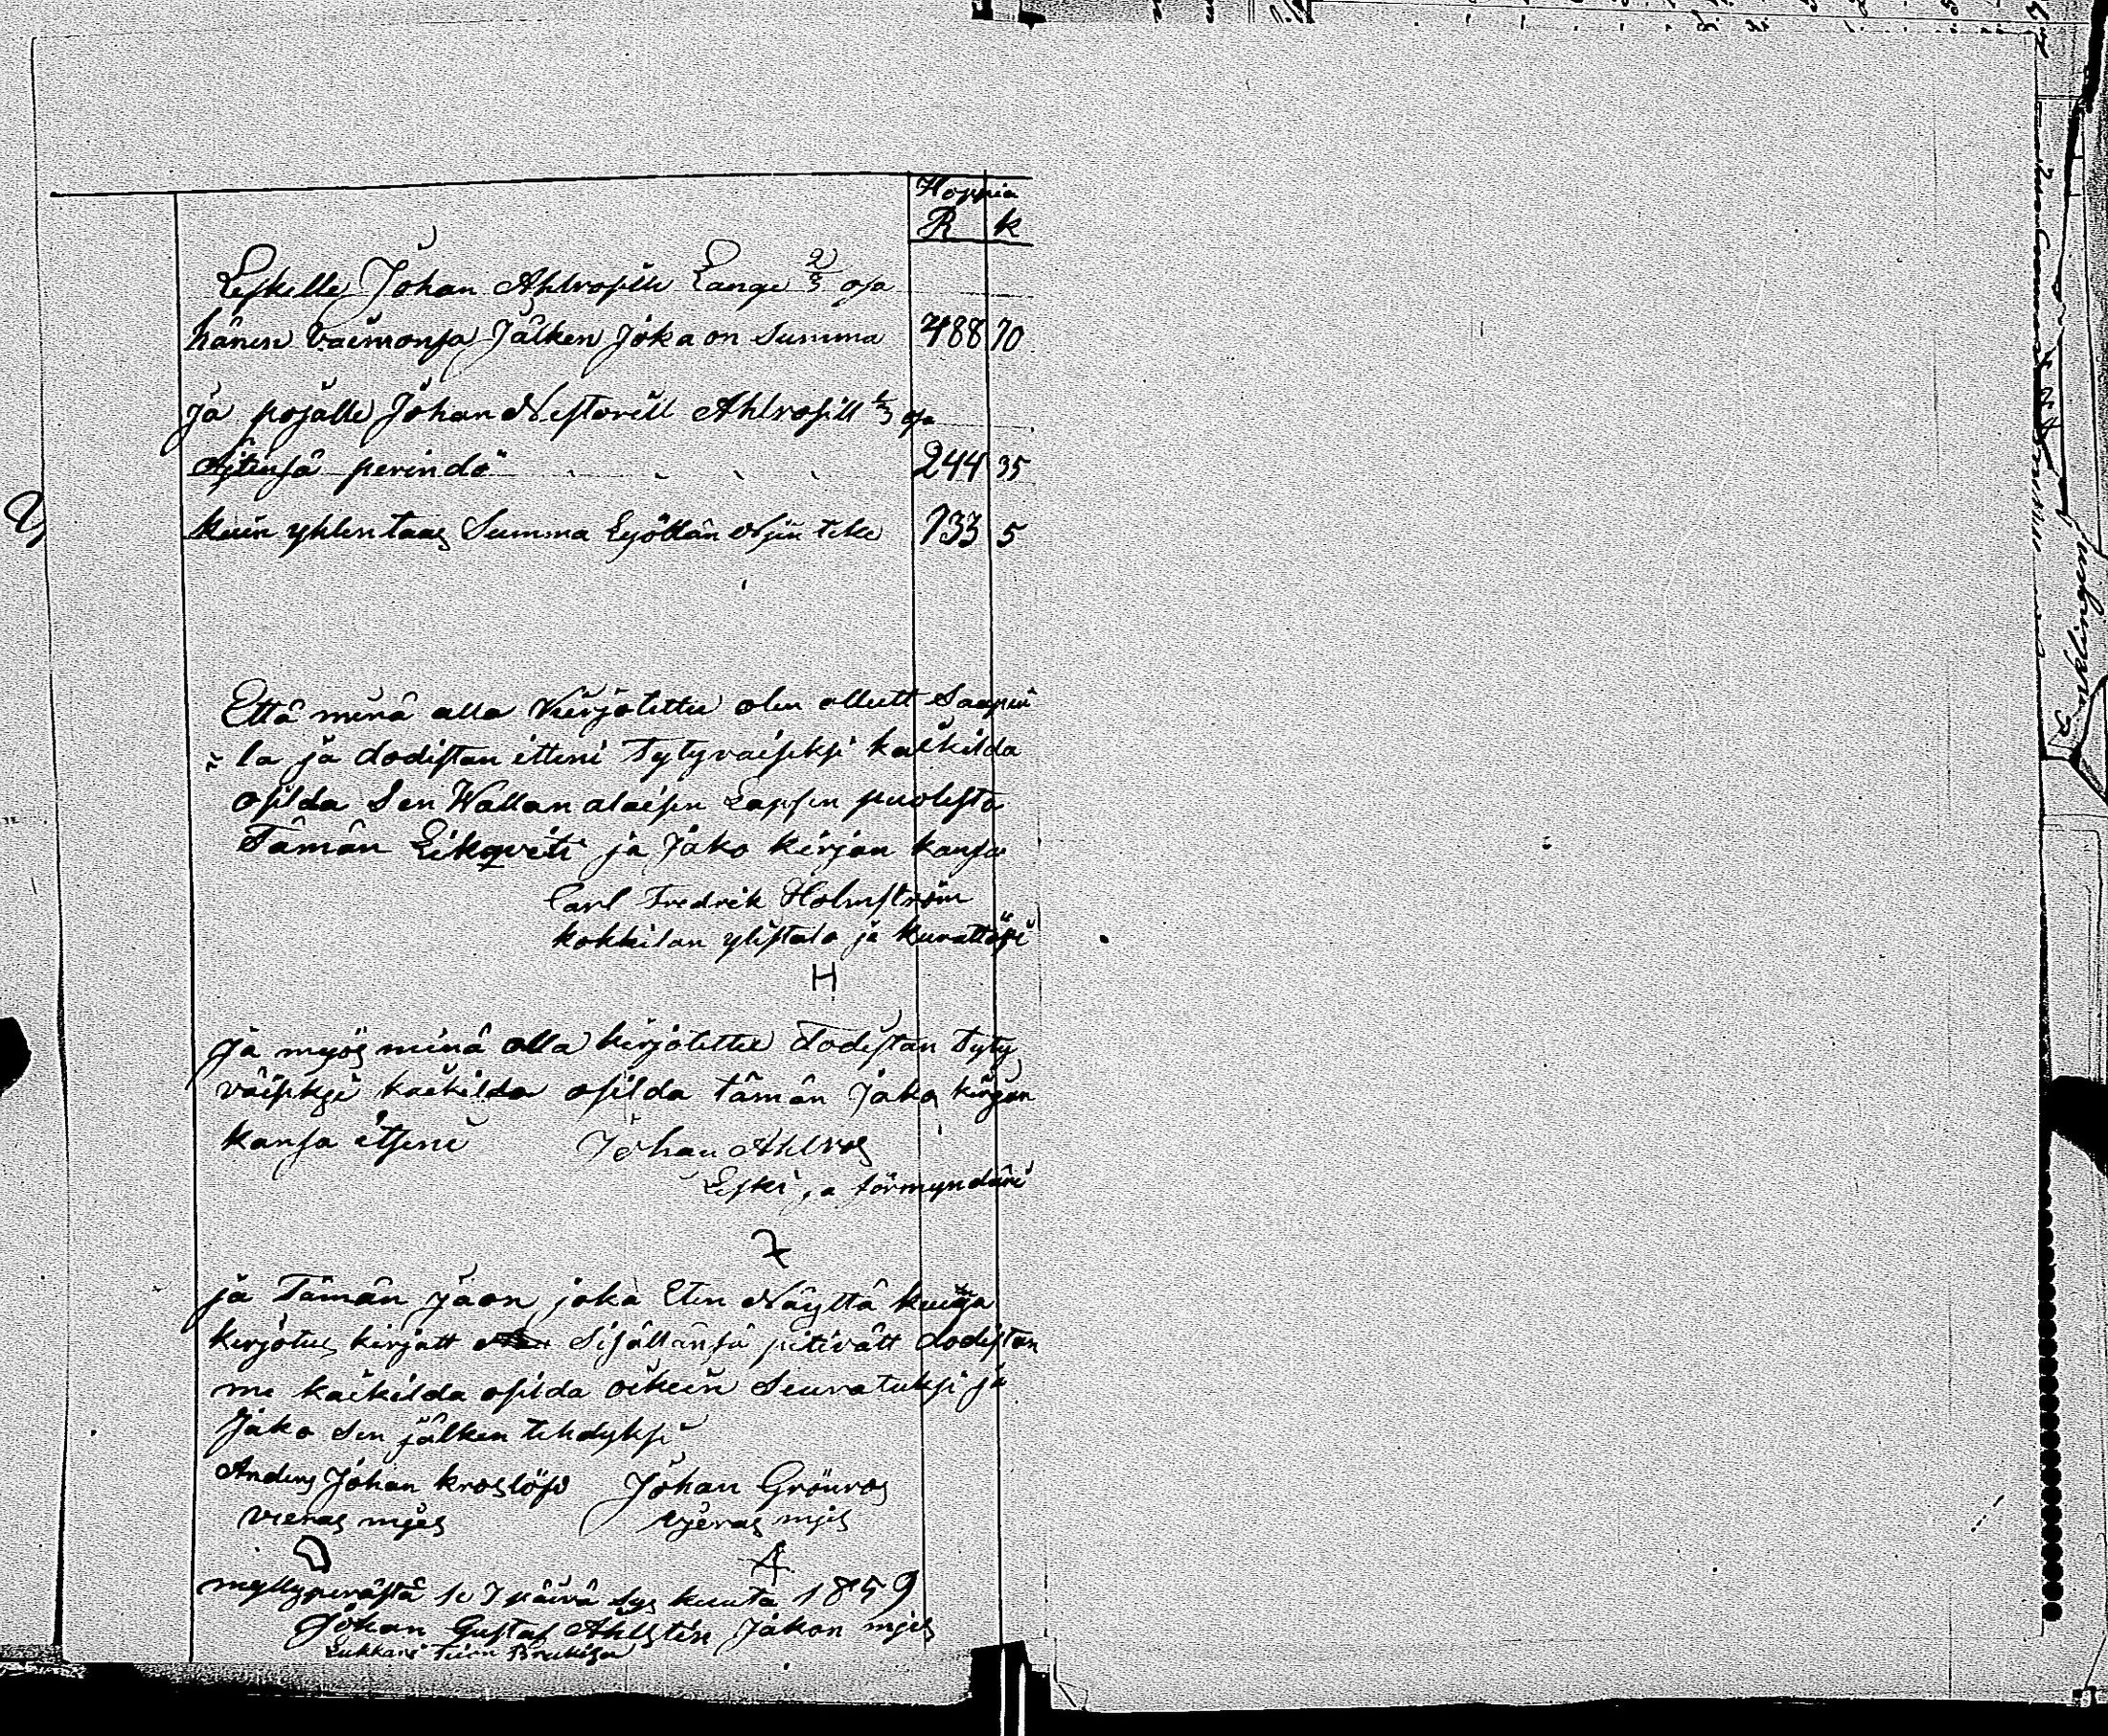 Hoppia
R k
Leskelle Johan Ahlrosille Lange 2/3 osa
hänen vaimonsa Jälken Joka on Summa 488 70
Ja pojalle Johan Nestorill Ahlrosill 1/3 osa
Äjtinsä perindö 244 35
kuin yhlen taas Summa Lyöttän Njin teke 733 5
Että minä alla kirjotettu olen ollutt Saapui
la ja dodistan itteni Tytyvaiseksi kaikilda
osilda Sen Wallan alaisen Lapsen puolesta
Tämän Likqviti ja Jako kirjan kansa
Carl Fredrik Holmström
kokkilan ylistalo ja kurattori
H
Ja myös minä alla kirjotettu Todistan Tyty
väiseksi kaikilda osilda tämän Jako kirjan
kansa itseni Johan Ahlros
Leski ja förmyndäri
ja Tämän jaon joka Eten Näyttä kuiga
kirjotus kirjatt Sisällänsä pitivätt dodistan
me kaikilda osilda oikein Seuratuksi ja
Jako sen jälken tehdyksi
Anders Johan kroslöf Johan Grönros
vieras mjes vjeras mjes
A
myllyperästä se 7 päivä Sys kuuta 1859
Johan Gustaf Ahlsten Jakon mjes
Lukkari
Enklingen